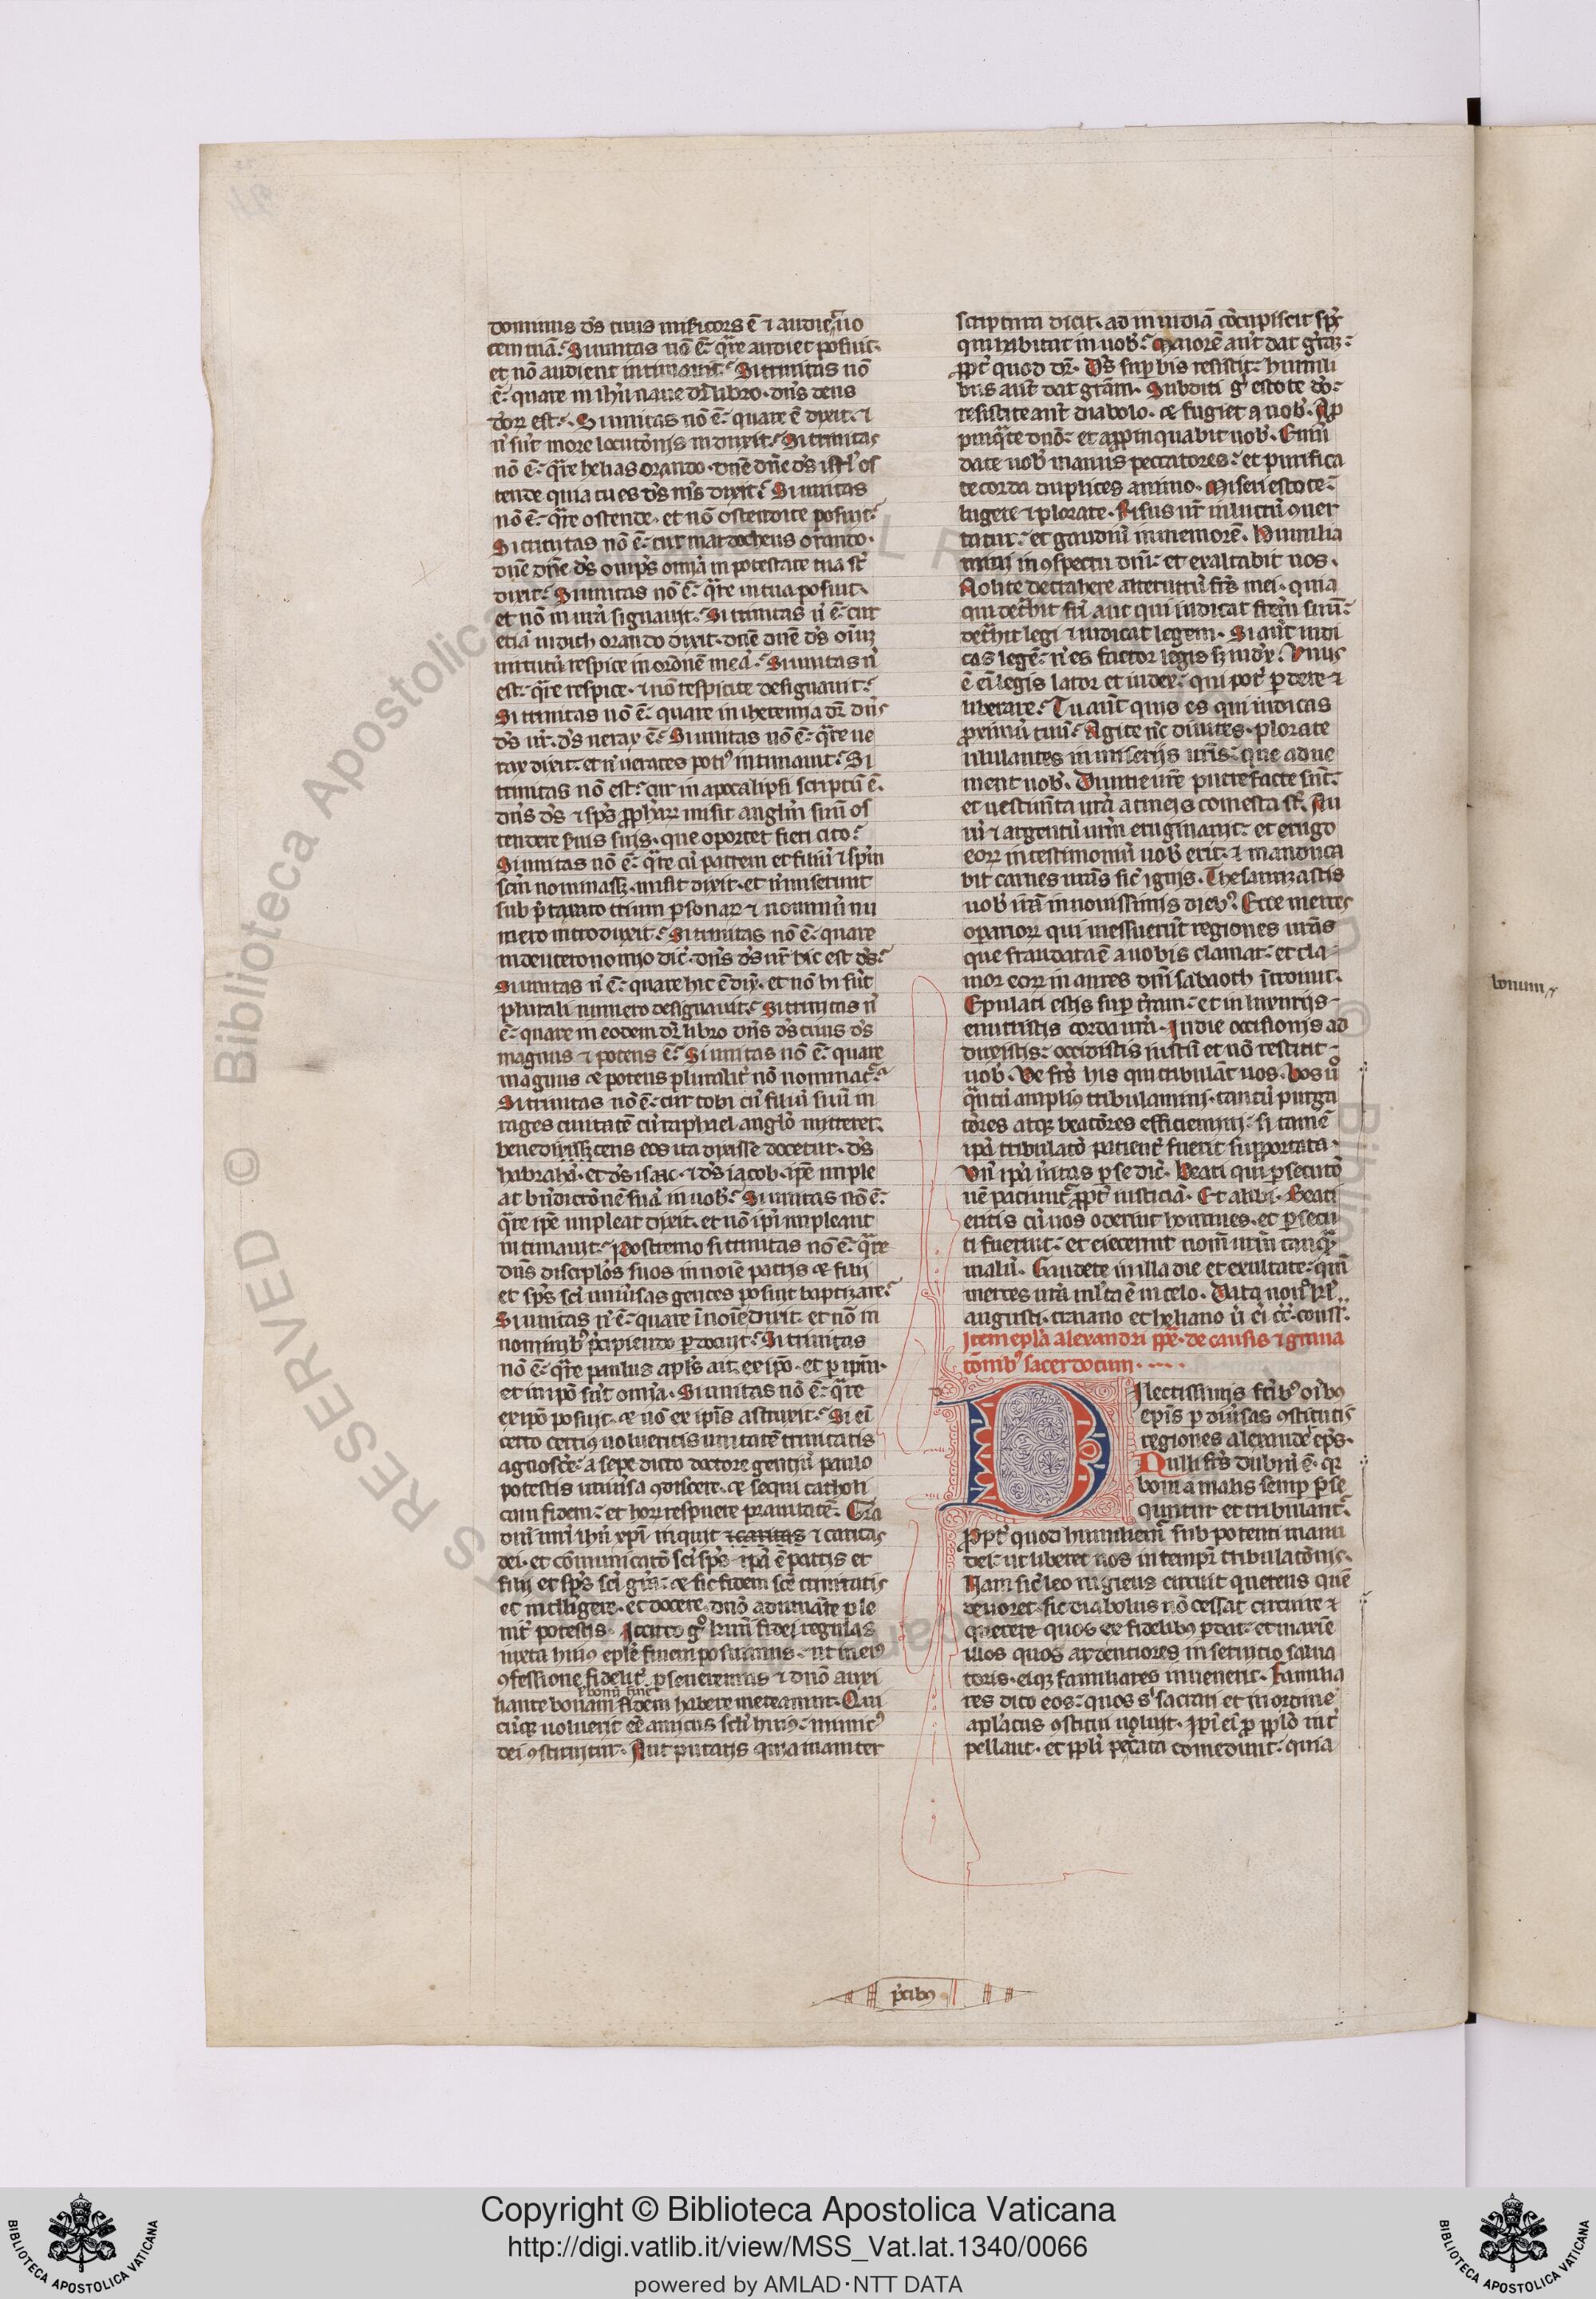 dominus d̄s tuus mīsicors ē ⁊ audiet uo
cem tuā. Si unitas nō ē. q̄re audiet posuit.
et nō audient intimauit. Si trinitas nō
ē. quare in ihū naue dr̄ libro. dn̄s deus
Si unitas nō ē. quare ē dixit. ⁊
nō ē. q̄re helias orando. dn̄e dn̄e d̄s isrl' os
tende quia tu es d̄s n̄s dixit. Si unitas
nō ē. q̄re ostende. et nō ostendite posuit.
Si trinitas nō ē. cur mardocheus orando.
dn̄e dn̄e d̄s om̄ps om̄ia in potestate tua st̄
dixit. Si unitas nō ē. q̄re in tua posuit.
et nō in ur̄a signauit. Si trinitas n̄ ē. cur
etiā iudith orando dixit. dn̄e dn̄e d̄s
uirtutū respice in ordnē meā. Si unitas n̄
est. q̄re respice. ⁊ nō respicite designauit.
Si trinitas nō ē. quare in iheremia dr̄ dn̄s
d̄s ur̄. d̄s uerax ē. Si unitas nō ē. q̄re ue
rax dixit. et n̄ ueraces potiꝰ intimauit. Si
trinitas nō est. cur in apocalipsi scriptū ē.
dn̄s d̄s ⁊ sp̄s misit angl̄m suū os
tendere suis. que oportet fieri cito.
Si unitas nō ē. q̄re cū patrem et filiū ⁊ sp̄m
sc̄m nominass. misit dixit. et n̄ miserunt
mero introduxit. Si trinitas nō ē. quare
in deuteronomio dic̄. dn̄s d̄s nr̄ hic est d̄s.
Si unitas n̄ ē. quare hic ē dix̄. et nō hi sūt
plurali numero designauit. Si trinitas n̄
ē. quare in eodem dr̄ libro dn̄s d̄s tuus d̄s
magnus ⁊ potens ē. Si unitas nō ē. quare
magnus ⁊ potens pluralit̄ nō nominat̄.
Si trinitas nō ē. cur tobi cū filiū suū in
rages ciuitatē cū raphael anglo mitteret.
eos ita dixisse docetur. d̄s
habrahā. et d̄s isaac. ⁊ d̄s iacob. ip̄e imple
at bn̄dictōnē suā in uob̄. Si unitas nō ē.
q̄re ip̄e impleat dixit. et nō ip̄i impleant
intimauit. Postremo si trinitas nō ē. q̄re
dn̄s disciplos suos in noīe patris ⁊ filij
et sp̄s sc̄i uniūsas gentes posuit baptizare.
Si unitas n̄ ē. quare ī noīe dixit. et nō in
nominibꝰ p̄cipiendo docuit. Si trinitas
nō ē. q̄re paulus apl̄s ait. ex ip̄o. et p ip̄m.
et in ip̄o sūt om̄ia. Si unitas nō ē. q̄re
ex ip̄o posuit. ⁊ nō ex ip̄is astruxit. Si ei
certo certiꝰ uolueritis unitatē trinitatis
agnosc̄e. a sepe dicto doctore gentiū paulo
cam fidem. et horrespuere prauitatē. Gra
dn̄i nr̄i ihū xp̄i inquit ⁊ caritas ⁊ caritas
dei. et cōmunicatō sc̄i sp̄s. ip̄a ē patris et
filij et sp̄s sc̄i gr̄a. ⁊ sic fidem sc̄e trinitatis
et intelligere. et docere. dn̄o adiuuāte ple
nit̄ potestis. Iccirco g° harū fidei regulas
iuxta huiꝰ ep̄le finem posuimus. ut in eiꝰ
ꝯfessione fidelit̄ pseueremus ⁊ dn̄o auxi
liante bonam fidem habere mereamur. Qui
cūq; uoluerit eē amicus secl̄i huiꝰ. inimicꝰ
dei ꝯstituitur. Aut putatis quia inaniter
scriptura dicit. ad inuidiā cōcupiscit sp̄c
qui habitat in uob̄. Maiorē aut̄ dat gr̄az.
ꝓpt̄ quod dr̄. D̄s supbis resistit. humili
bus aut̄ dat gr̄am. Subditi g̊ estote dō.
resistite aut̄ diabolo. ⁊ fugiet a uob̄. Ap
pinq̄te dn̄o. et appinquabit uob̄. Emū
date uob̄ manus peccatores. et purifica
te corda duplices animo. Miseri estote.
lugete ⁊ plorate. Risus ur̄ in luctū ꝯuer
tatur. et gaudiū in memorē. Humilia
mini in ꝯspectu dn̄i. et exaltabit uos.
Nolite detrahere alterutrū fr̄s mei. quia
qui det̄hit fr̄i aut qui iudicat fr̄em suū.
det̄hit legi ⁊ iudicat legem. Si aut̄ iudi
cas legē. n̄ es factor legis sz iudex. Vnus
ē ei legis lator et iudex. qui pot̄ pdere ⁊
liberare. Tu aut̄ quis es qui iudicas
ꝓximū tuū. Agite nc̄ diuites. plorate
ululantes in miserijs ur̄is. que adue
nient uob̄. Diuitie ur̄e putrefacte sūt.
et uestim̄ta ur̄a a tineis comesta st̄. Au
rū ⁊ argentū ur̄m eruginauit. et erugo
eor̄ in testimoniū uob̄ erit. ⁊ manduca
bit carnes ur̄as sic̄ ignis. Thesaurizastis
uob̄ irā in nouissimis diebꝰ. Ecce merces
operarior̄ qui messuerūt regiones ur̄as
que fraudata ē a uobis clamat. et cla
mor eor̄ in aures dn̄i sabaoth ītroiuit.
Epulati estis sup t̄ram. et in luxurijs
enutristis corda ur̄a. In die occisionis ad
duxistis. occidistis iustū et nō restitit
uob̄. Ve fr̄s his qui tribulāt uos. Vos ū
q̄ntū ampliꝰ tribulamini. tantū purga
tōres atq; beatōres efficiemini. si tamē
ip̄a tribulatō patient̄ fuerit supportata.
Vn̄ ip̄a ūitas p se dic̄. Beati qui psecutō
nē patiunt̄ ꝓpt̄ iusticiā. Et alibi. Beati
eritis cū uos oderint homines. et psecu
ti fuerint. et eiecerint nom̄ ur̄m tanq̄
malū. Gaudete in illa die et exultate. qm̄
merces ur̄a ml̄ta ē in celo. Dat
augusti. traiano et heliano
Item epl̄a alexandri pp̄e. de causis ⁊ graua
tōnibꝰ sacerdotum.
Dilectissimis fr̄ibꝰ oībꝰ
ep̄is p diūsas ꝯstitutis
regiones alexandē ep̄s.
Nulli fr̄s dubiū ē. q̄
boni a malis semp pse
quntur et tribulant̄.
Propt̄ quod humiliem̄ sub potenti manu
dei. ut liberet nos in tempr̄ tribulatōnis.
Nam sic̄ leo rugiens circuit querens quē
deuoret. sic diabolus nō cessat circuire ⁊
querere quos ex fidelibꝰ pdat. et maxīe
illos quos ardentiores in seruitio salua
toris. eiq; familiares inuenerit. Familia
res dico eos. quos s' sacrari et in ordine
apl̄atus ꝯstitui uoluit. Ip̄i ei p pp̄lo int̄
pellant. et pp̄li pecc̄ata comedunt. quia
p̄cibꝰ
bonum